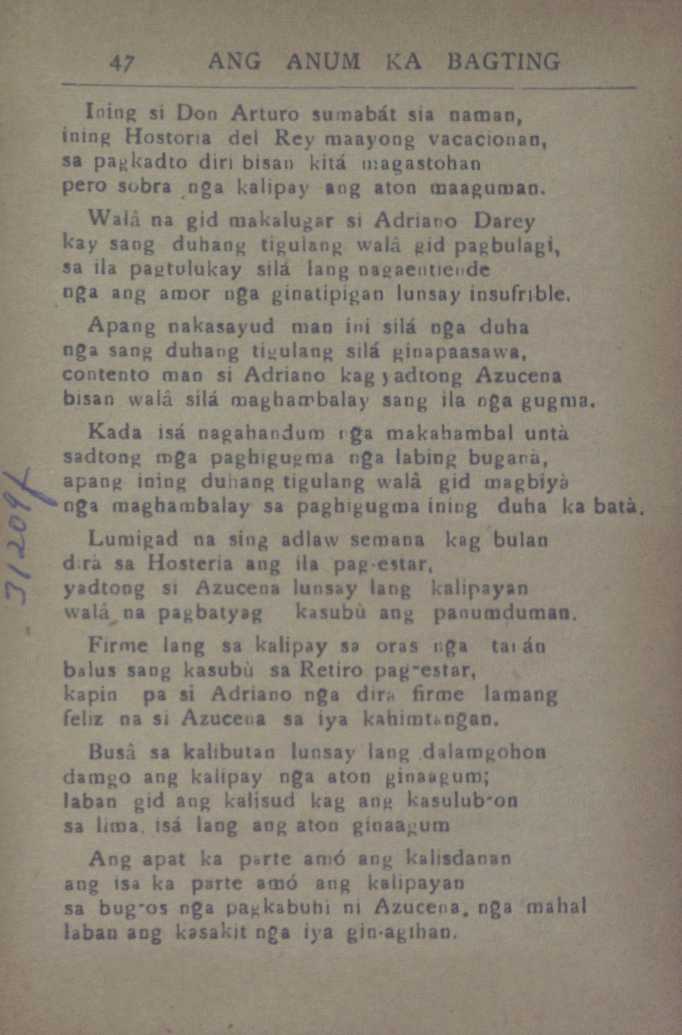 47 ANG ANUM KA BAGTING
Ining si Don Arturo sumabát sia naman,
ining Hostoria del Rey maayong vacacionan,
sa pagkadto diri bisan kitá magastohan
pero sobra nga kalipay ang aton maaguman.
Walâ na gid makalugar si Adriano Darcy
kay sang duhang tigulang walâ gid pagbulagi,
sa ila pagtulukay silá lang nagaentiende
nga ang amor nga ginatipigan lunsay insufrible.
Apang nakasayud man ini silá nga duha
nga sang duhang tigulang silá ginapaasawa,
contento man si Adriano kag yadtong Azucena
bisan walâ silá maghambalay sang ila nga gugma.
Kada isá nagahandum nga makahambal untà
sadtong mga paghigugma nga labing buganà,
apang ining duhang tigulang walâ gid magbiyà
nga maghambalay sa paghigugma ining duha ka batà.
Lumigad na sing adlaw semana kag bulan
dirà sa Hosteria ang ila pag-estar,
yadtong si Azucena lunsay lang kalipayan
walâ na pagbatyag kasubù ang panumduman.
Firme lang sa kalipay sa oras nga tanán
balus sang kasubù sa Retiro pag-estar,
kapin pa si Adriano nga dira firme lamang
feliz na si Azucena sa iya kahimtangan.
Busâ sa kalibutan lunsay lang dalamgohon
damgo ang kalipay nga aton ginaagum;
laban gid ang kalisud kag ang kasulub-on
sa lima, isá lang ang aton ginaagum
Ang apat ka parte amó ang kalisdanan
ang isa ka parte amó ang kalipayan
sa bug-os nga pagkabuhi ni Azucena, nga mahal
laban ang kasakit nga iya gin-agihan.
31209